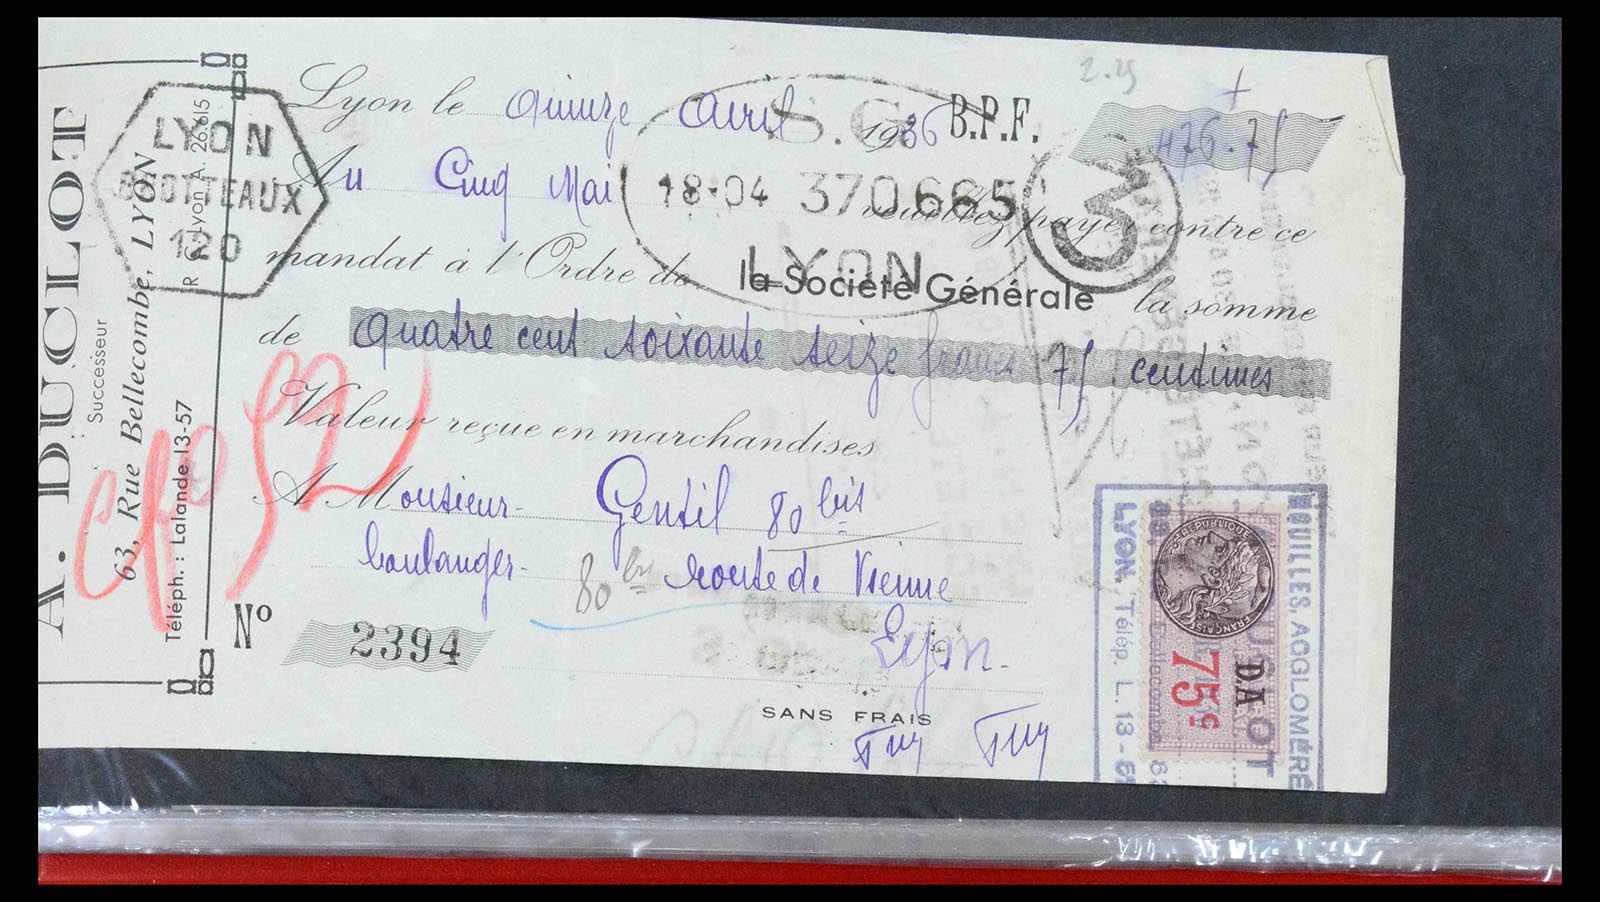 A. DUCLOT
Successeur
63, Rue Bellecombe, LYON
Téléph. : Lalande 13-57
R. C. Lyon A. 26.615
LYON
BROTTEAUX
120
2.25
Lyon le quinze Avril 1936 B.P.F. 476.75
S.G.
18-04 370.665
LYON
Au Cinq Mai veuillez payer contre ce
mandat à l'Ordre de la Société Générale la somme
de quatre cent soixante seize francs 75 centimes
Valeur reçue en marchandises
A Monsieur Gentil 80 bis
boulanger 80 bis route de Vienne
Lyon
Nº 2394
SANS FRAIS
HOUILLES, AGGLOMÉRÉ
LYON. Télép. L. 13-5
RÉPUBLIQUE
FRANÇAISE
75c
DA